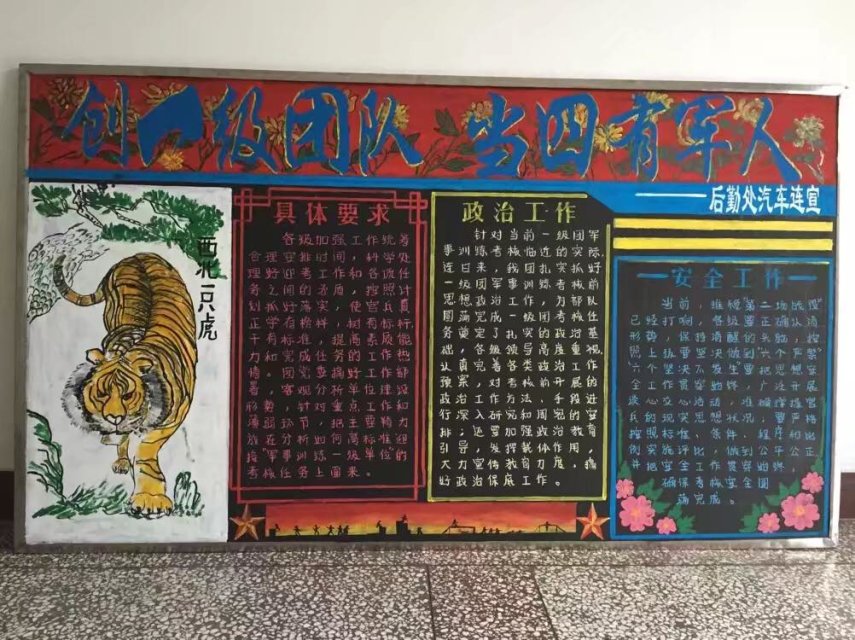 创一级团队 当四有军人
后勤处汽车连宣
西北一只虎
具体要求
各级加强工作统筹
合理安排时间，科学处
理好迎考工作和各项任
务之间的矛盾，按照计
划抓好落实，使官兵真
正学有榜样，树有标杆，
干有标准，提高素质能
力和完成任务的工作热
情。团党委搞好工作部
署，客观分析单位建设
形势，针对重点工作和
薄弱环节，把主要精力
放在分析如何高标准迎
接"军事训练一级单位"的
考核任务上面来。
政治工作
针对当前一级团军
事训练考核临近的实际，
连日来，我团扎实抓好
一级团军事训练考核前
思想政治工作，为部队
圆满完成一级团考核任
务奠定了扎实的政治基
础，各级领导高度重视，
认真完善各类政治工作
预案，对考核前开展的
政治工作方法、手段进
行深入研究和周
排，还要加强政治教育，
引导，发挥 体作用，搞
大力宣传教育力度，
好政治保障工作。
安全工作
当前，
已经打响，各级要正确认清
形势，保持清醒头脑，按
照上级要求做到
六个坚决不发生
全工作贯穿始终，
谈心交心活动，
兵的现实思想状况，
按照标准、条件、程序
到实施评比工作
并把安全工作
确保考核安全圆
满完成。